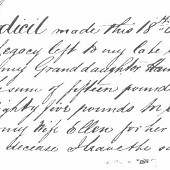 dicil made this 18th
legacy left to my late
my Granddaughter Han
sum of fifteen pounds
ighty five pounds for
my Wife Ellen for her
decease I leave the